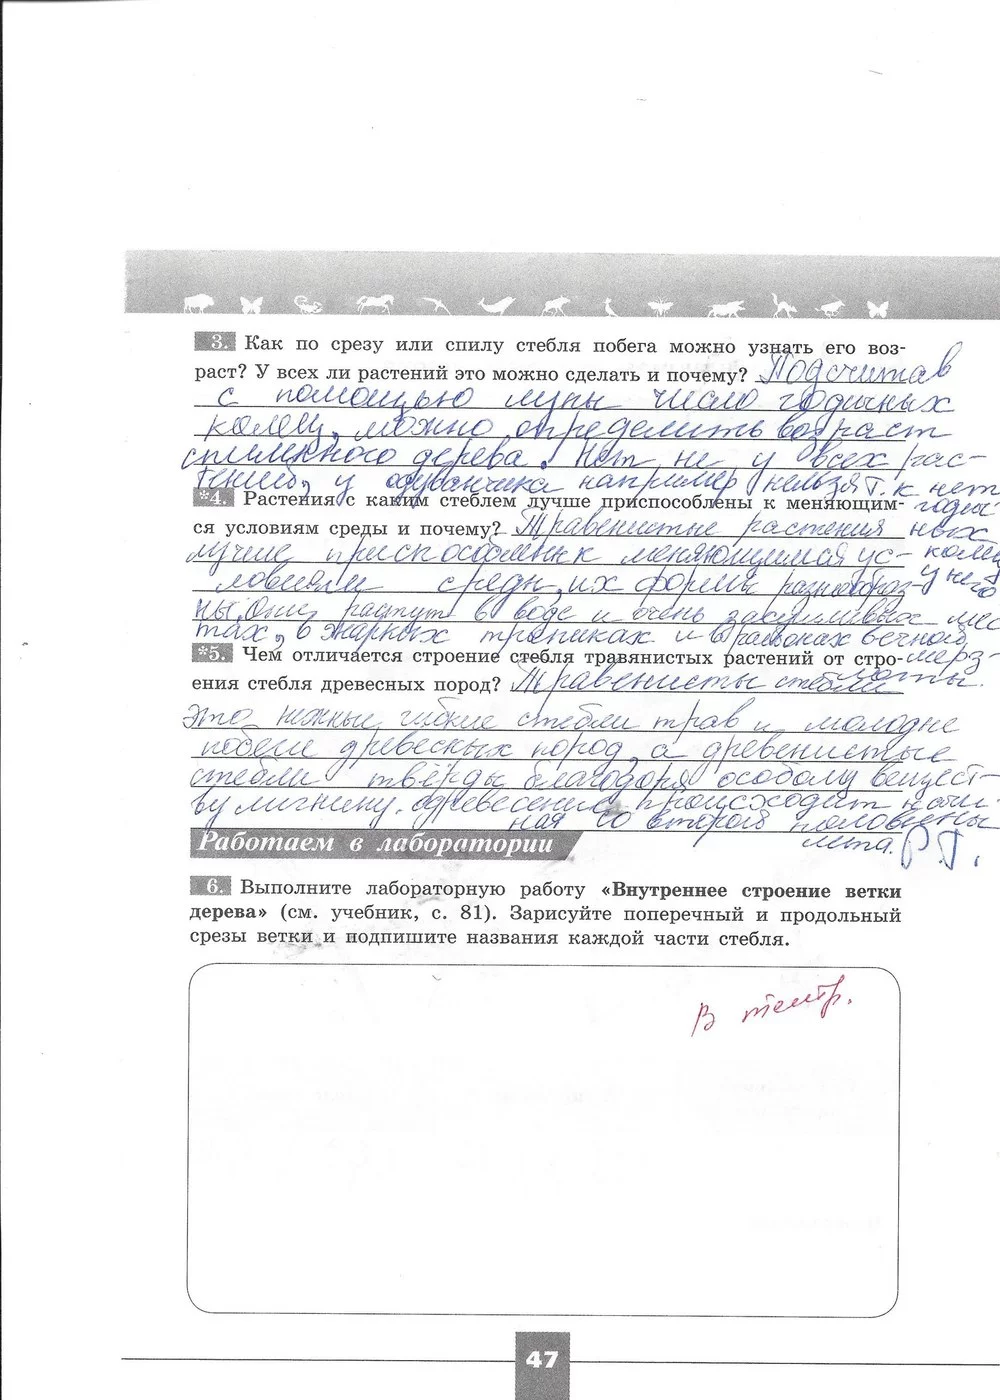 3. Как по срезу или спилу стебля побега можно узнать его воз-
раст? У всех ли растений это можно сделать и почему? Подсчитав
с помощью лупы число годичных
колец, можно определить возраст
спиленного дерева. Нет не у всех рас-
тений, у одуванчика например нельзя т.к нет
годич-
ных
колец
у него
*4. Растения с каким стеблем лучше приспособлены к меняющим-
ся условиям среды и почему? Травенистые растения
лучше приспособленны к меняющимся ус-
ловиям среды, их формы разнообраз-
ны. Они растут в воде и очень засушливых мес
тах, в жарких тропиках и в районах вечной
мерз-
лоты.
*5. Чем отличается строение стебля травянистых растений от стро-
ения стебля древесных пород? Травенисты стебли
это нежные гибкие стебли трав и молодые
побеги древесных пород, а древенистые
стебли твёрды благодаря особому вещест-
ву лигнину. одревесение происходит начи-
ная со второй половины
лета. Р.Т.
Работаем в лаборатории
6. Выполните лабораторную работу «Внутреннее строение ветки
дерева» (см. учебник, с. 81). Зарисуйте поперечный и продольный
срезы ветки и подпишите названия каждой части стебля.
В тетр.
47